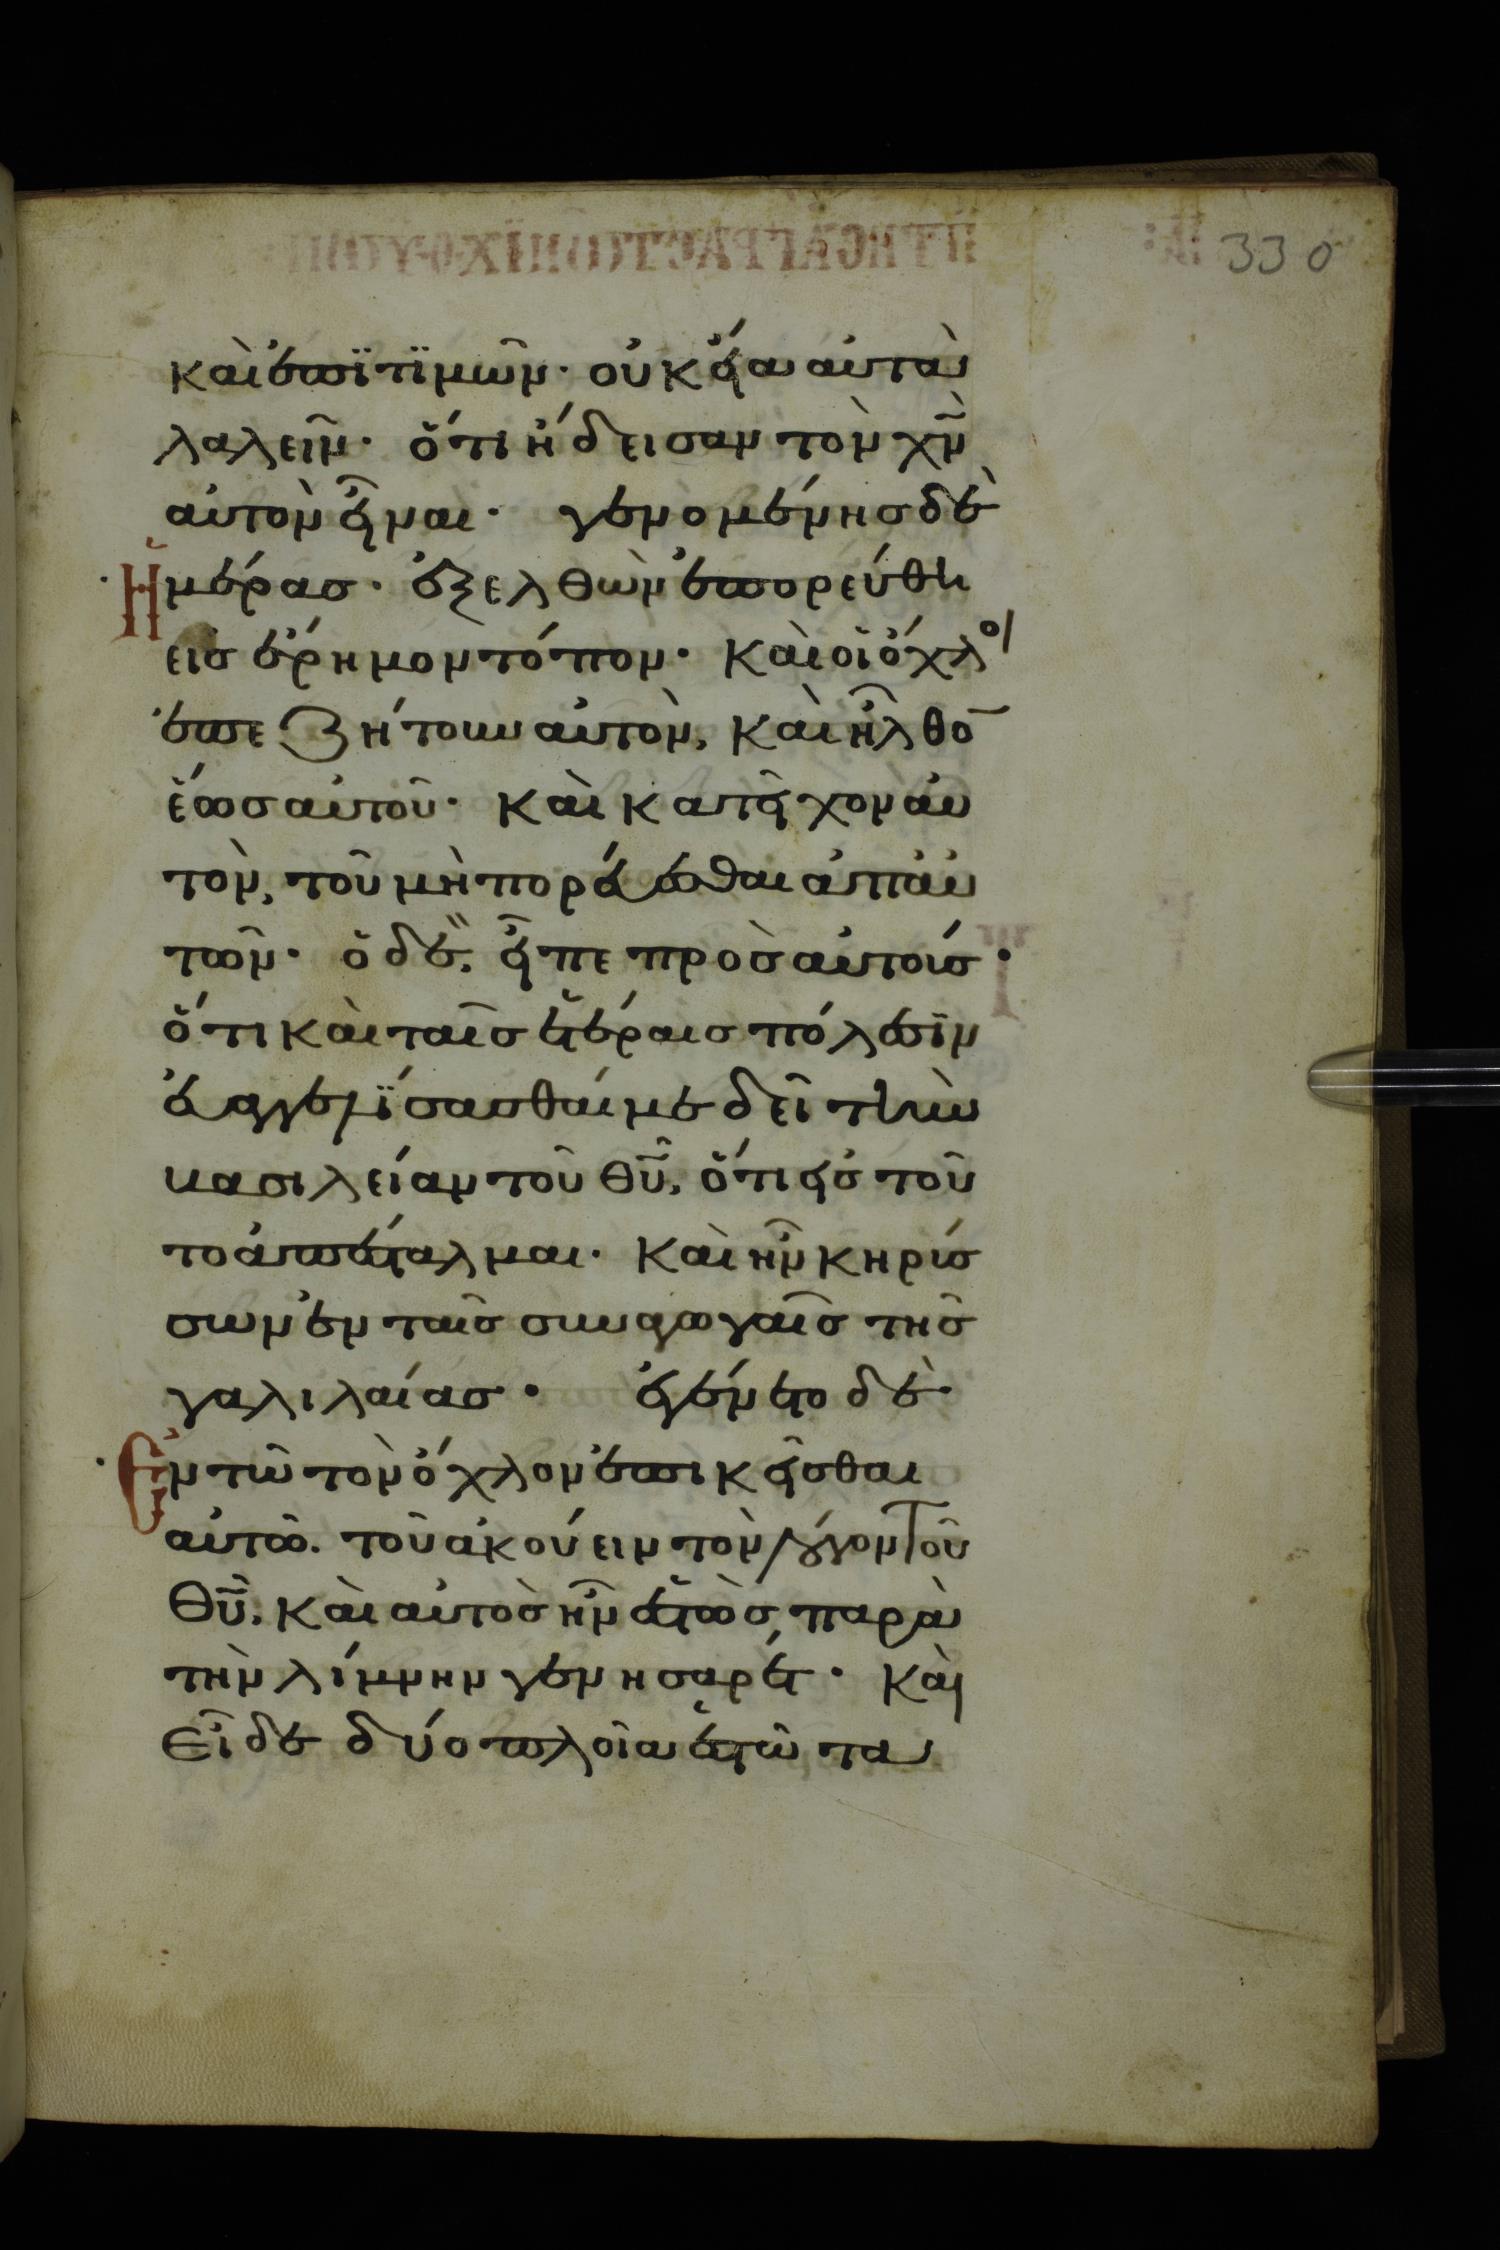 330
καὶ ἐπϊτϊμῶν· οὐκ εἴα αὐτὰ
λαλεῖν· ὅτι ἤδεισαν τὸν χ̅ν̅
αὐτὸν εἶναι· γενομένησ δὲ
Ἡμέρασ· ἐξελθὼν ἐπορεύθη
εἰσ ἔρημον τόπον· καὶ οἱ ὄχλοι
ἐπεζήτουν αὐτὸν, καὶ ἦλθο̅
ἕωσ αὐτοῦ· καὶ κατεῖχον αὐ
τὸν, τοῦ μὴ πορεύεσθαι ἀπ' αὐ
τῶν· ὁ δὲ, εἶπε πρὸσ αὐτούσ·
ὅτι καὶ ταῖσ ἑτέραισ πόλεσϊν
εὐαγγελϊσασθαί με δεῖ τὴν
βασιλείαν τοῦ θ̅υ̅, ὅτι εἰσ τοῦ
το ἀπέσταλμαι· καὶ ἦν κηρύσ
σων ἐν ταῖσ συναγωγαῖσ τῆσ
γαλιλαίασ· ἐγένετο δὲ
Ἐν τῶ τὸν ὄχλον ἐπικεῖσθαι
αὐτῶ. τοῦ ἀκούειν τὸν λόγον τοῦ
θ̅υ̅. καὶ αὐτὸσ ἦν ἑστὼσ παρὰ
τὴν λίμνην γενησαρέτ· καὶ
εἶδε δύο πλοῖα ἑστῶτα